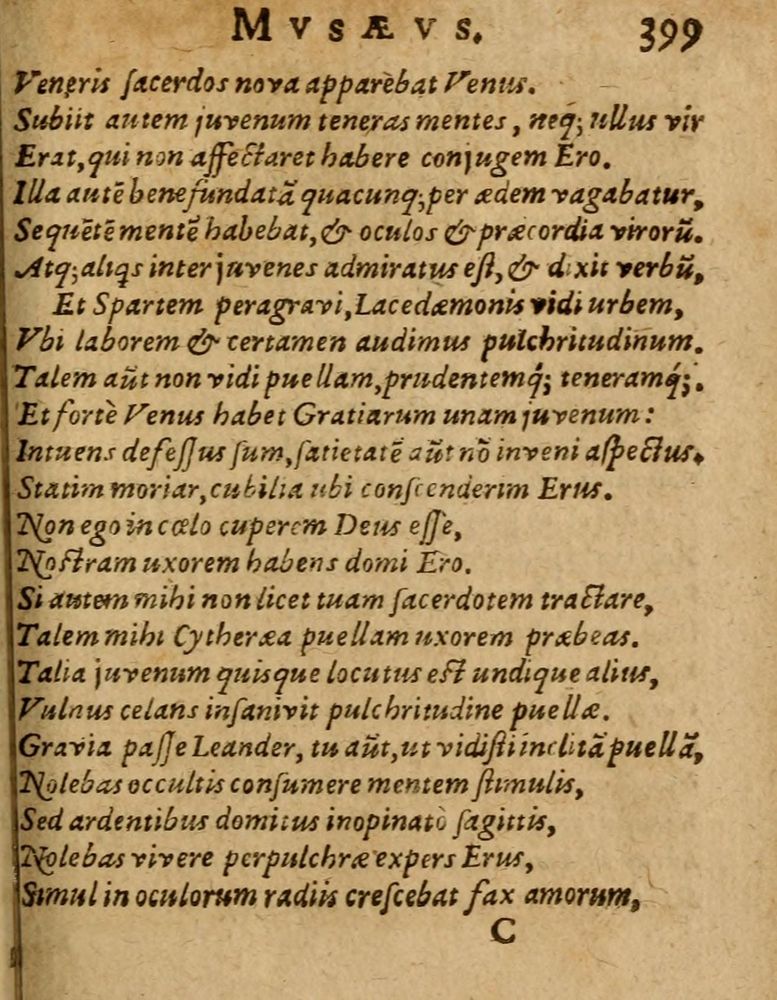 MVSÆVS. 399
Veneris ſacerdos nova apparèbat Venus.
Subiit autem juvenum teneras mentes, neq́; ullus vir
Erat, qui non affectaret habere conjugem Ero.
Illa autẽ benefundatã quacunq; per ædem vagabatur,
Sequẽtẽ mentẽ habebat, & oculos & præcordia virorũ.
Atq; aliqs inter juvenes admiratus eſt, & dixit verbũ,
Et Spartem peragravi, Lacedæmonis vidi urbem,
Vbi laborem & certamen audimus pulchritudinum.
Talem aũt non vidi puellam, prudentemq́; teneramq́;.
Et fortè Venus habet Gratiarum unam juvenum:
Intuens defeſſus ſum, ſatietatẽ aũt nõ inveni aſpectus.
Statim moriar, cubilia ubi conſcenderim Erus.
Non ego in cœlo cuperem Deus eſſe,
Noſtram uxorem habens domi Ero.
Si autem mihi non licet tuam ſacerdotem tractare,
Talem mihi Cytheræa puellam uxorem præbeas.
Talia juvenum quisque locutus eſt undique alius,
Vulnus celans inſanivit pulchritudine puellæ.
Gravia paſſe Leander, tu aũt, ut vidiſti inclitã puellã,
Nolebas occultis conſumere mentem ſtimulis,
Sed ardentibus domitus inopinatò ſagittis,
Nolebas vivere perpulchræ expers Erus,
Simul in oculorum radiis creſcebat fax amorum,
C